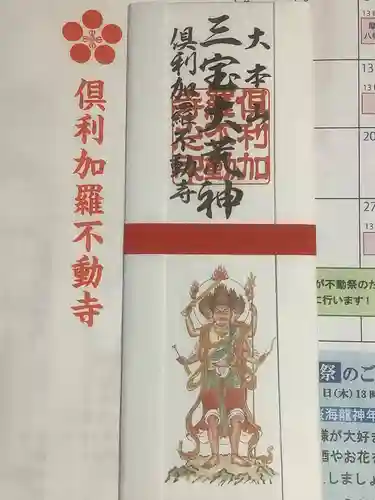 倶利加羅不動寺
大本山
三宝大荒神
倶利加羅不動寺
倶利加
羅不動
13
13
20
27
13
が不動祭のた
に行います!
祭のご
日(木)13時
海龍神年
様が大好き
酒やお花を
しましょ